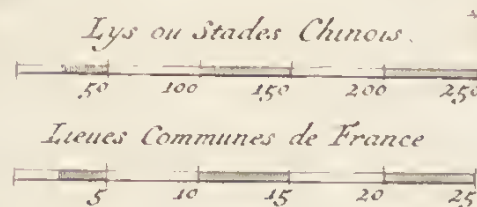 Lys ou Stades Chinois.
50 100 150 200 250
Lieues Communes de France
5 10 15 20 25